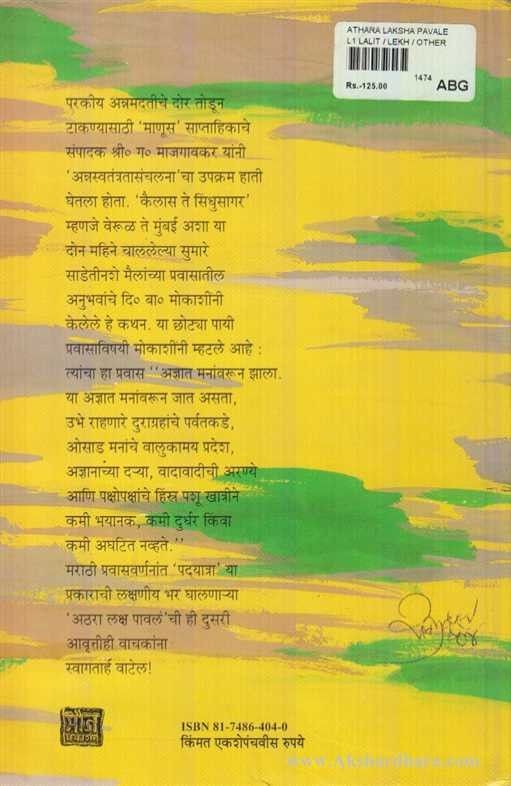 ATHARA LAKSHA PAVALE
L1 LALIT / LEKH / OTHER
1474
Rs.-125.00
ABG
परकीय अन्नमदतीचे दोर तोडून
टाकण्यासाठी ‘माणूस’ साप्ताहिकाचे
संपादक श्री० ग० माजगावकर यांनी
‘अन्नस्वतंत्रतासंचलना’चा उपक्रम हाती
घेतला होता. ‘कैलास ते सिंधुसागर’
म्हणजे वेरूळ ते मुंबई अशा या
दोन महिने चाललेल्या सुमारे
साडेतीनशे मैलांच्या प्रवासातील
अनुभवांचे दि० बा० मोकाशींनी
केलेले हे कथन. या छोट्या पायी
प्रवासाविषयी मोकाशींनी म्हटले आहे :
त्यांचा हा प्रवास ‘‘अज्ञात मनांवरून झाला.
या अज्ञात मनांवरून जात असता,
उभे राहणारे दुराग्रहांचे पर्वतकडे,
ओसाड मनांचे वालुकामय प्रदेश,
अज्ञानाच्या दऱ्या, वादावादीची अरण्ये
आणि पक्षोपक्षांचे हिंस्र पशू खात्रीने
कमी भयानक, कमी दुर्धर किंवा
कमी अघटित नव्हते.’’
मराठी प्रवासवर्णनांत ‘पदयात्रा’ या
प्रकाराची लक्षणीय भर घालणाऱ्या
‘अठरा लक्ष पावलं’ची ही दुसरी
आवृत्तीही वाचकांना
स्वागतार्ह वाटेल!
मौज
प्रकाशन
ISBN 81-7486-404-0
किंमत एकशेपंचवीस रुपये
www.Akshardhara.com